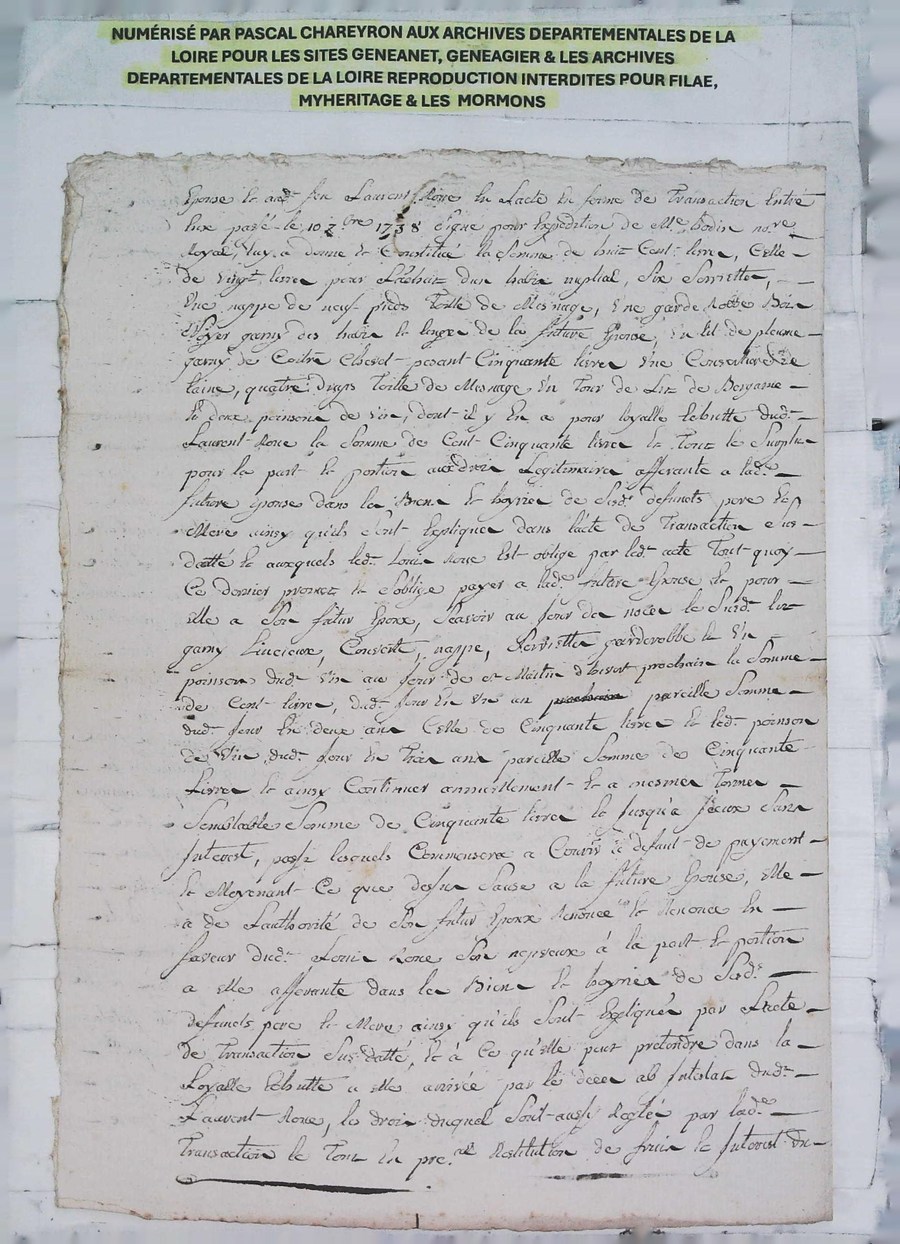 NUMÉRISÉ PAR PASCAL CHAREYRON AUX ARCHIVES DEPARTEMENTALES DE LA
LOIRE POUR LES SITES GENEANET, GENEAGIER & LES ARCHIVES
DEPARTEMENTALES DE LA LOIRE REPRODUCTION INTERDITES POUR FILAE,
MYHERITAGE & LES MORMONS
Epouse et aud. feu Laurent Roue En Lacte En forme de Transaction Entre
Eux passé le 10 7bre 1738 signé pour Expedition de Me Bodin nore
Royal, luy a donné et Constitué la Somme de huit Cent livre, Celle
de vingt livre pour L'achait d'un habit nuptial, Six Serviette,
Une nappe de neuf pieds Toille de Mesnage, Une garde Robbe Boix
Noyer garny des habis et linges de la future Epouse, Un lit de plume
garny de Coitre Chevet pesant Cinquante livre Une Couverture de
laine, quatre draps Toille de Mesnage Un Tour de Lit de Bergame
Et deux poinson de vin, dont il y En a pour loyalle Echutte dud.
Laurent Roue la Somme de Cent Cinquante livre Et Tout le Surplu
pour la part Et portion aux droi Legitimaire afferante a lade
future Epouse dans les Biens Et hoyrie de Sesd. defunts pere Et
Mere ainsy qu'ils Sont Expliqué dans l'acte de Transaction Sus
datté Et auxquels led. Louis Roue Est obligé par led. acte Tout quoy
Ce dernier promet Et s'oblige payer a lade future Epouse Et pour
Elle a Son futur Epoux, Scavoir au jour de noces le Susd. lit
garny Linceux, Couverte, nappe, Serviette garderobbe Et Un
poinson dud. vin au jour de st Martin d'hivert prochain la Somme
de Cent livre, dud. jour En Un an pareille Somme
dud. jour En deux ans Celle de Cinquante livre Et led. poinson
de vin dud. jour En Trois ans pareille Somme de Cinquante
Livre Et ainsy Continuer annuellement Et a mesmes Termes
Semblable Somme de Cinquante livre Et jusqu'a Sans
Interest, passé lesquels Commensera a Courir a defaut de payement
Et Moyenant Ce que dessus a la future Epouse, Elle
a de Lauthorité de Son futur Epoux Renoncé Et Renonce En
faveur dud. Louis Roue Son nepveux à la part Et portion
a Elle afferante dans les Biens Et hoyries de Sesds
defunts pere Et Mere ainsy qu'ils Sont Expliqués par Lacte
de Transaction Sus datté, Et à Ce qu'elle peut pretendre dans la
Loyalle Echutte a Elle arrivée par le deces ab Intestat dud.
Laurent Roue, les droix duquel Sont aussy Reglé par lade
Transaction Et Tout En pral Restitution de fruis Et Interest En